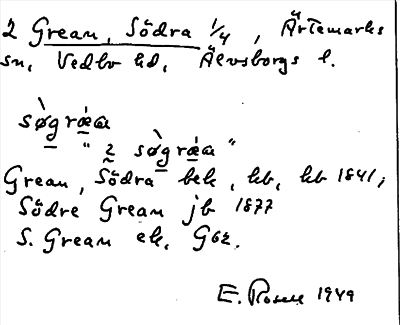 2 Grean, Södra 1/4, Ärtemarks
sn, Vedbo hd, Älvsborgs l.
sø̀græ̀a
" 2 sø̀græ̀a "
Grean, Södra bek, kb, hb 1841;
Södre Grean jb 1877
S. Grean ek, G62.
E. Rosell 1949